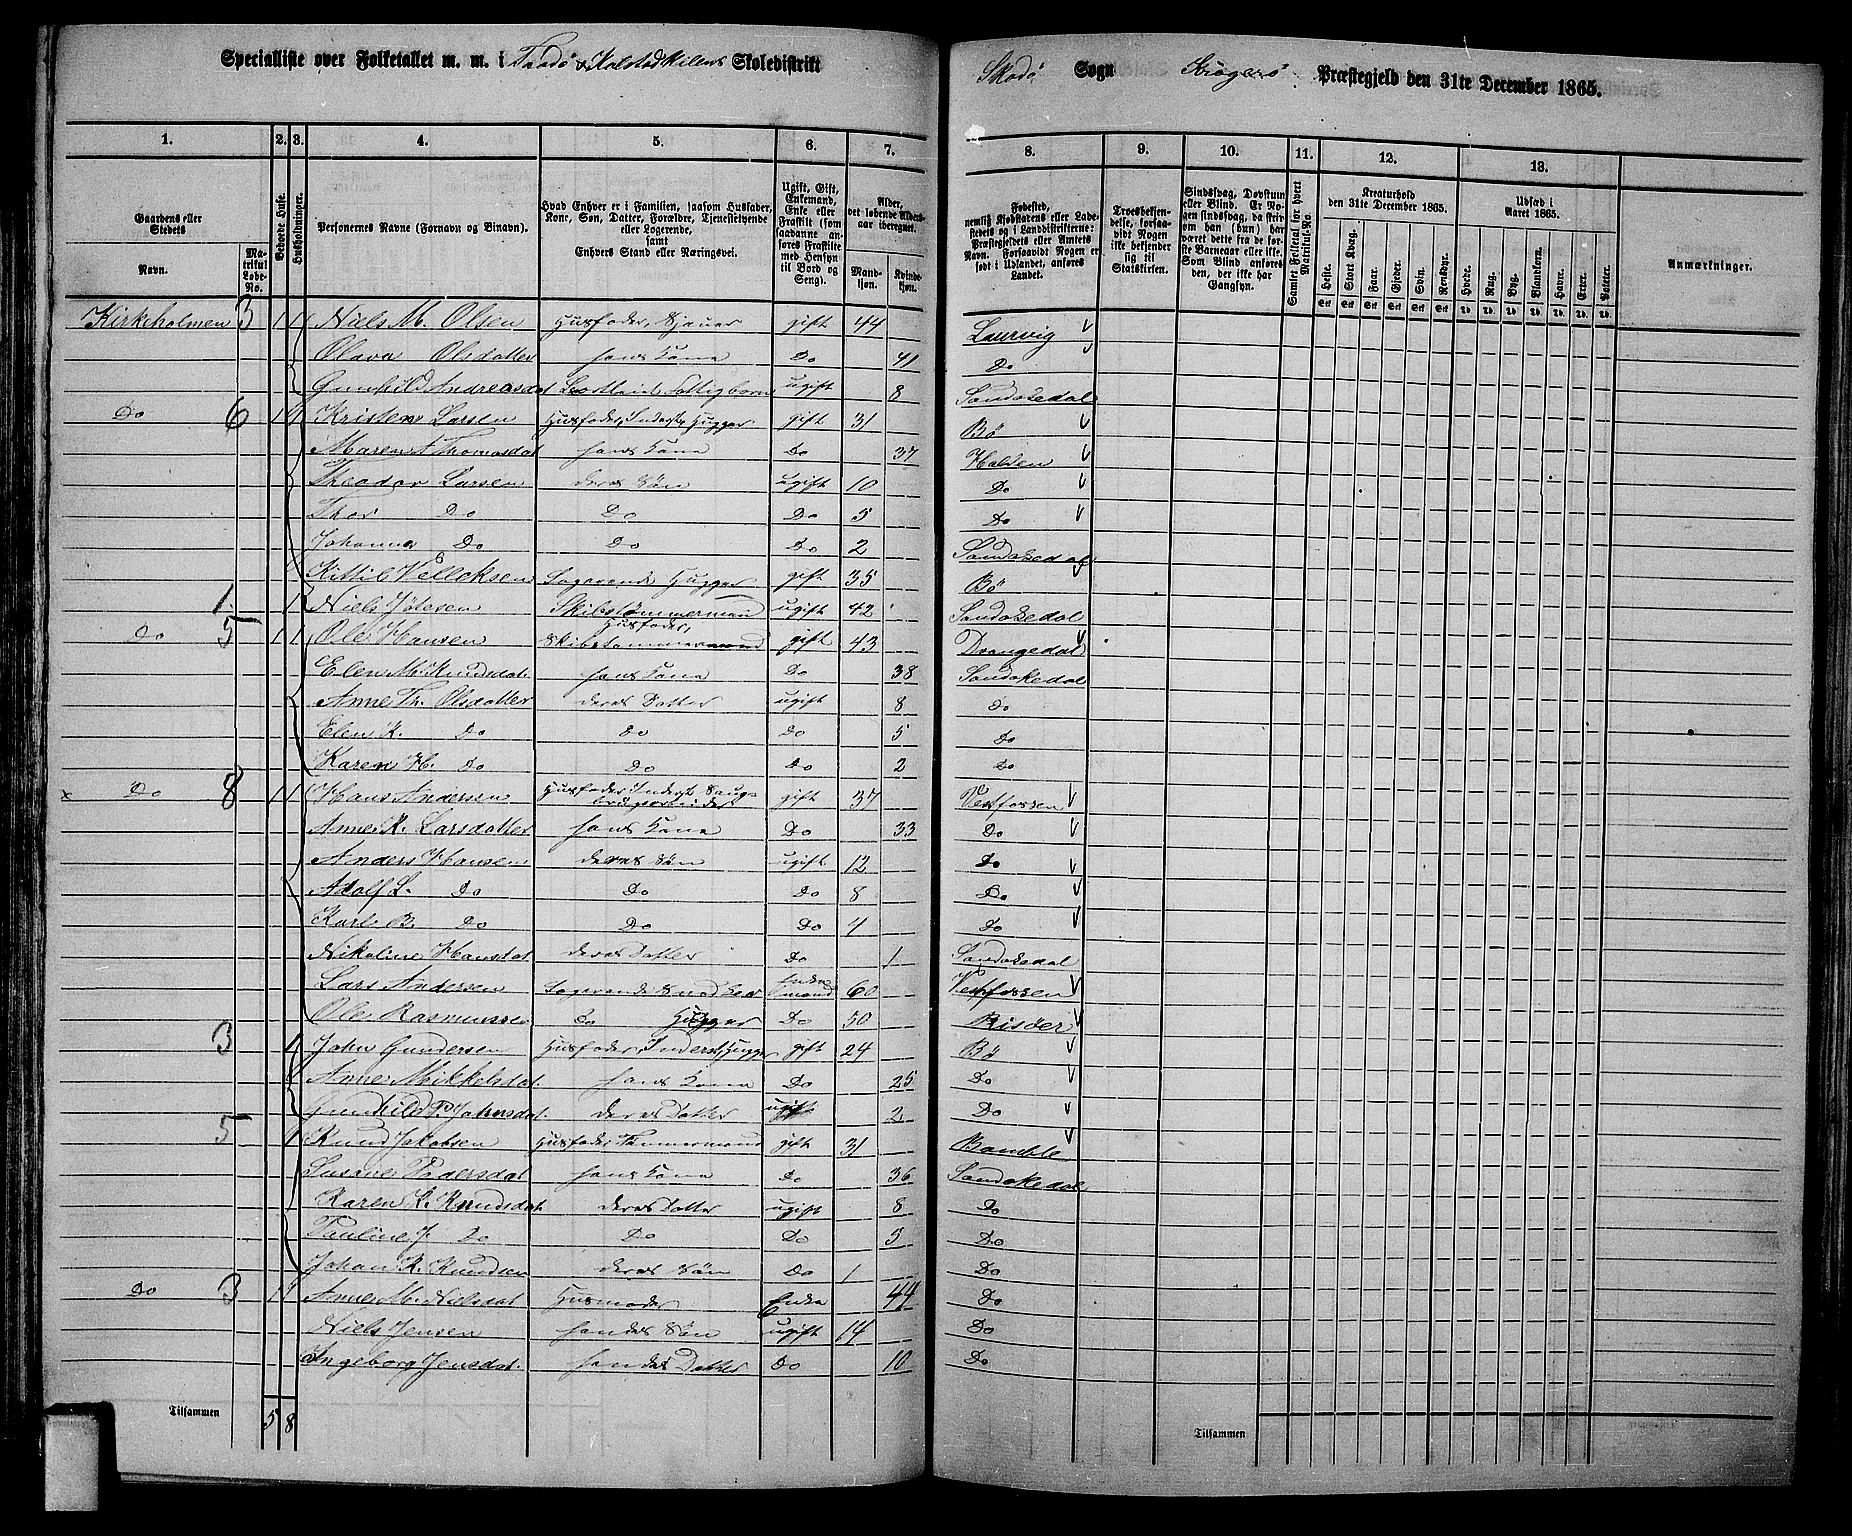 Specialliste over Folketallet m. m. i Skoledistrikt
Skadø Sogn Præstegjeld den 31te December 1865.
1. 2. 3. 4. 5. 6. 7. 8. 9. 10. 11. 12. 13.
Gaardens eller Stedets
Navn.
Matrikul Løbe-No.
Beboede Huse.
Husholdninger.
Personernes Navne (Fornavn og Binavn).
Hvad Enhver er i Familien, saasom Husfader, Kone, Søn, Datter, Forældre, Tjenestetyende eller Logerende,
samt
Enhvers Stand eller Næringsvei.
Ugift, Gift, Enkemand, Enke eller Fraskilt (som saadanne anføres Fraskilte med Hensyn til Bord og Seng).
Alder, det løbende Alders-aar iberegnet.
Mandkjøn.
Kvindekjøn.
Fødested,
nemlig Kjøbstadens eller Ladestedets og i Landdistrikterne: Præstegjeldets eller Amtets Navn. Forsaavidt Nogen er født i Udlandet, anføres Landet.
Troesbekjendelse, forsaavidt Nogen ikke bekjender sig til Statskirken.
Sindssvag, Døvstum eller Blind. Er Nogen sindssvag, da skriv om han (hun) har været dette fra de første Barneaar eller ikke. Som Blind anføres den, der ikke har Gangsyn.
Samlet Folketal for hvert Matrikul-No.
Kreaturhold den 31te December 1865.
Heste. Stort Kvæg. Faar. Gjeder. Svin. Rensdyr.
Udsæd i Aaret 1865.
Hvede. Rug. Byg. Blandkorn. Havre. Erter. Poteter.
Anmærkninger.
Kirkeholmen 3 1 1 Niels M. Olsen Husfader, Sjauer gift 44 Laurvig
Olava Olsdatter hans Kone Do 41 Do
Gunhild Andreasdat ugift 8 Sandøkedal
Do 6 1 1 Kristen Larsen Husfader, Inderst, Hugger gift 31 Bø
Maren A Thomasdat hans Kone Do 37 Holden
Theodor Larsen deres Søn ugift 10 Do
Thor Do Do Do 5 Do
Johannes Do Do Do 2 Sandøkedal
Kittil Velleksen Logerende Hugger gift 35 Bø
1. 1 Niels Skibstømmermand ugift 42 Sandøkedal
Do 5 1 1 Ole Hansen Husfader, Skibstømmermand gift 43 Drangedal
Elen M. Knudsdat. hans Kone Do 38 Sandøkedal
Anne Th. Olsdatter deres Datter ugift 8 Do
Elen K. Do Do Do 5 Do
Karen H. Do Do Do 2 Do
x Do 8 1 1 Hans Andersen Husfader Inderst Saugbrugsarbeider gift 37 Vestfossen
Anne K. Larsdatter hans Kone Do 33 Do
Anders Hansen deres Søn ugift 12 Do
Adolf L. Do Do Do 8 Do
Karl B. Do Do Do 4 Do
Nikoline Hansdat deres Datter Do 1 Sandøkedal
Lars Andersen Logerende Snedker Enkemand 60 Vestfossen
Ole Rasmussen Do Hugger Do 50 Risøer
3 1 John Gundersen Husfader Inderst Hugger gift 24 Bø
Anne Mikkelsdat. hans Kone Do 25 Do
Gunhild P. Johnsdat. deres Datter ugift 2 Do
5 1 Knud Jakobsen Husfader Tømmermand gift 31 Bamble
Susane Pedersdat hans Kone Do 36 Sandøkedal
Karen L. Knudsdat. deres Datter ugift 8 Do
Pauline J. Do Do Do 5 Do
Johan K. Knudsen deres Søn Do 1 Do
Do 3 1 1 Anne M. Nielsdat Husmoder Enke 44 Do
Niels Jensen hendes Søn ugift 14 Do
Ingeborg Jensdat. hendes Datter Do 10 Do
Tilsammen 5 8
Tilsammen